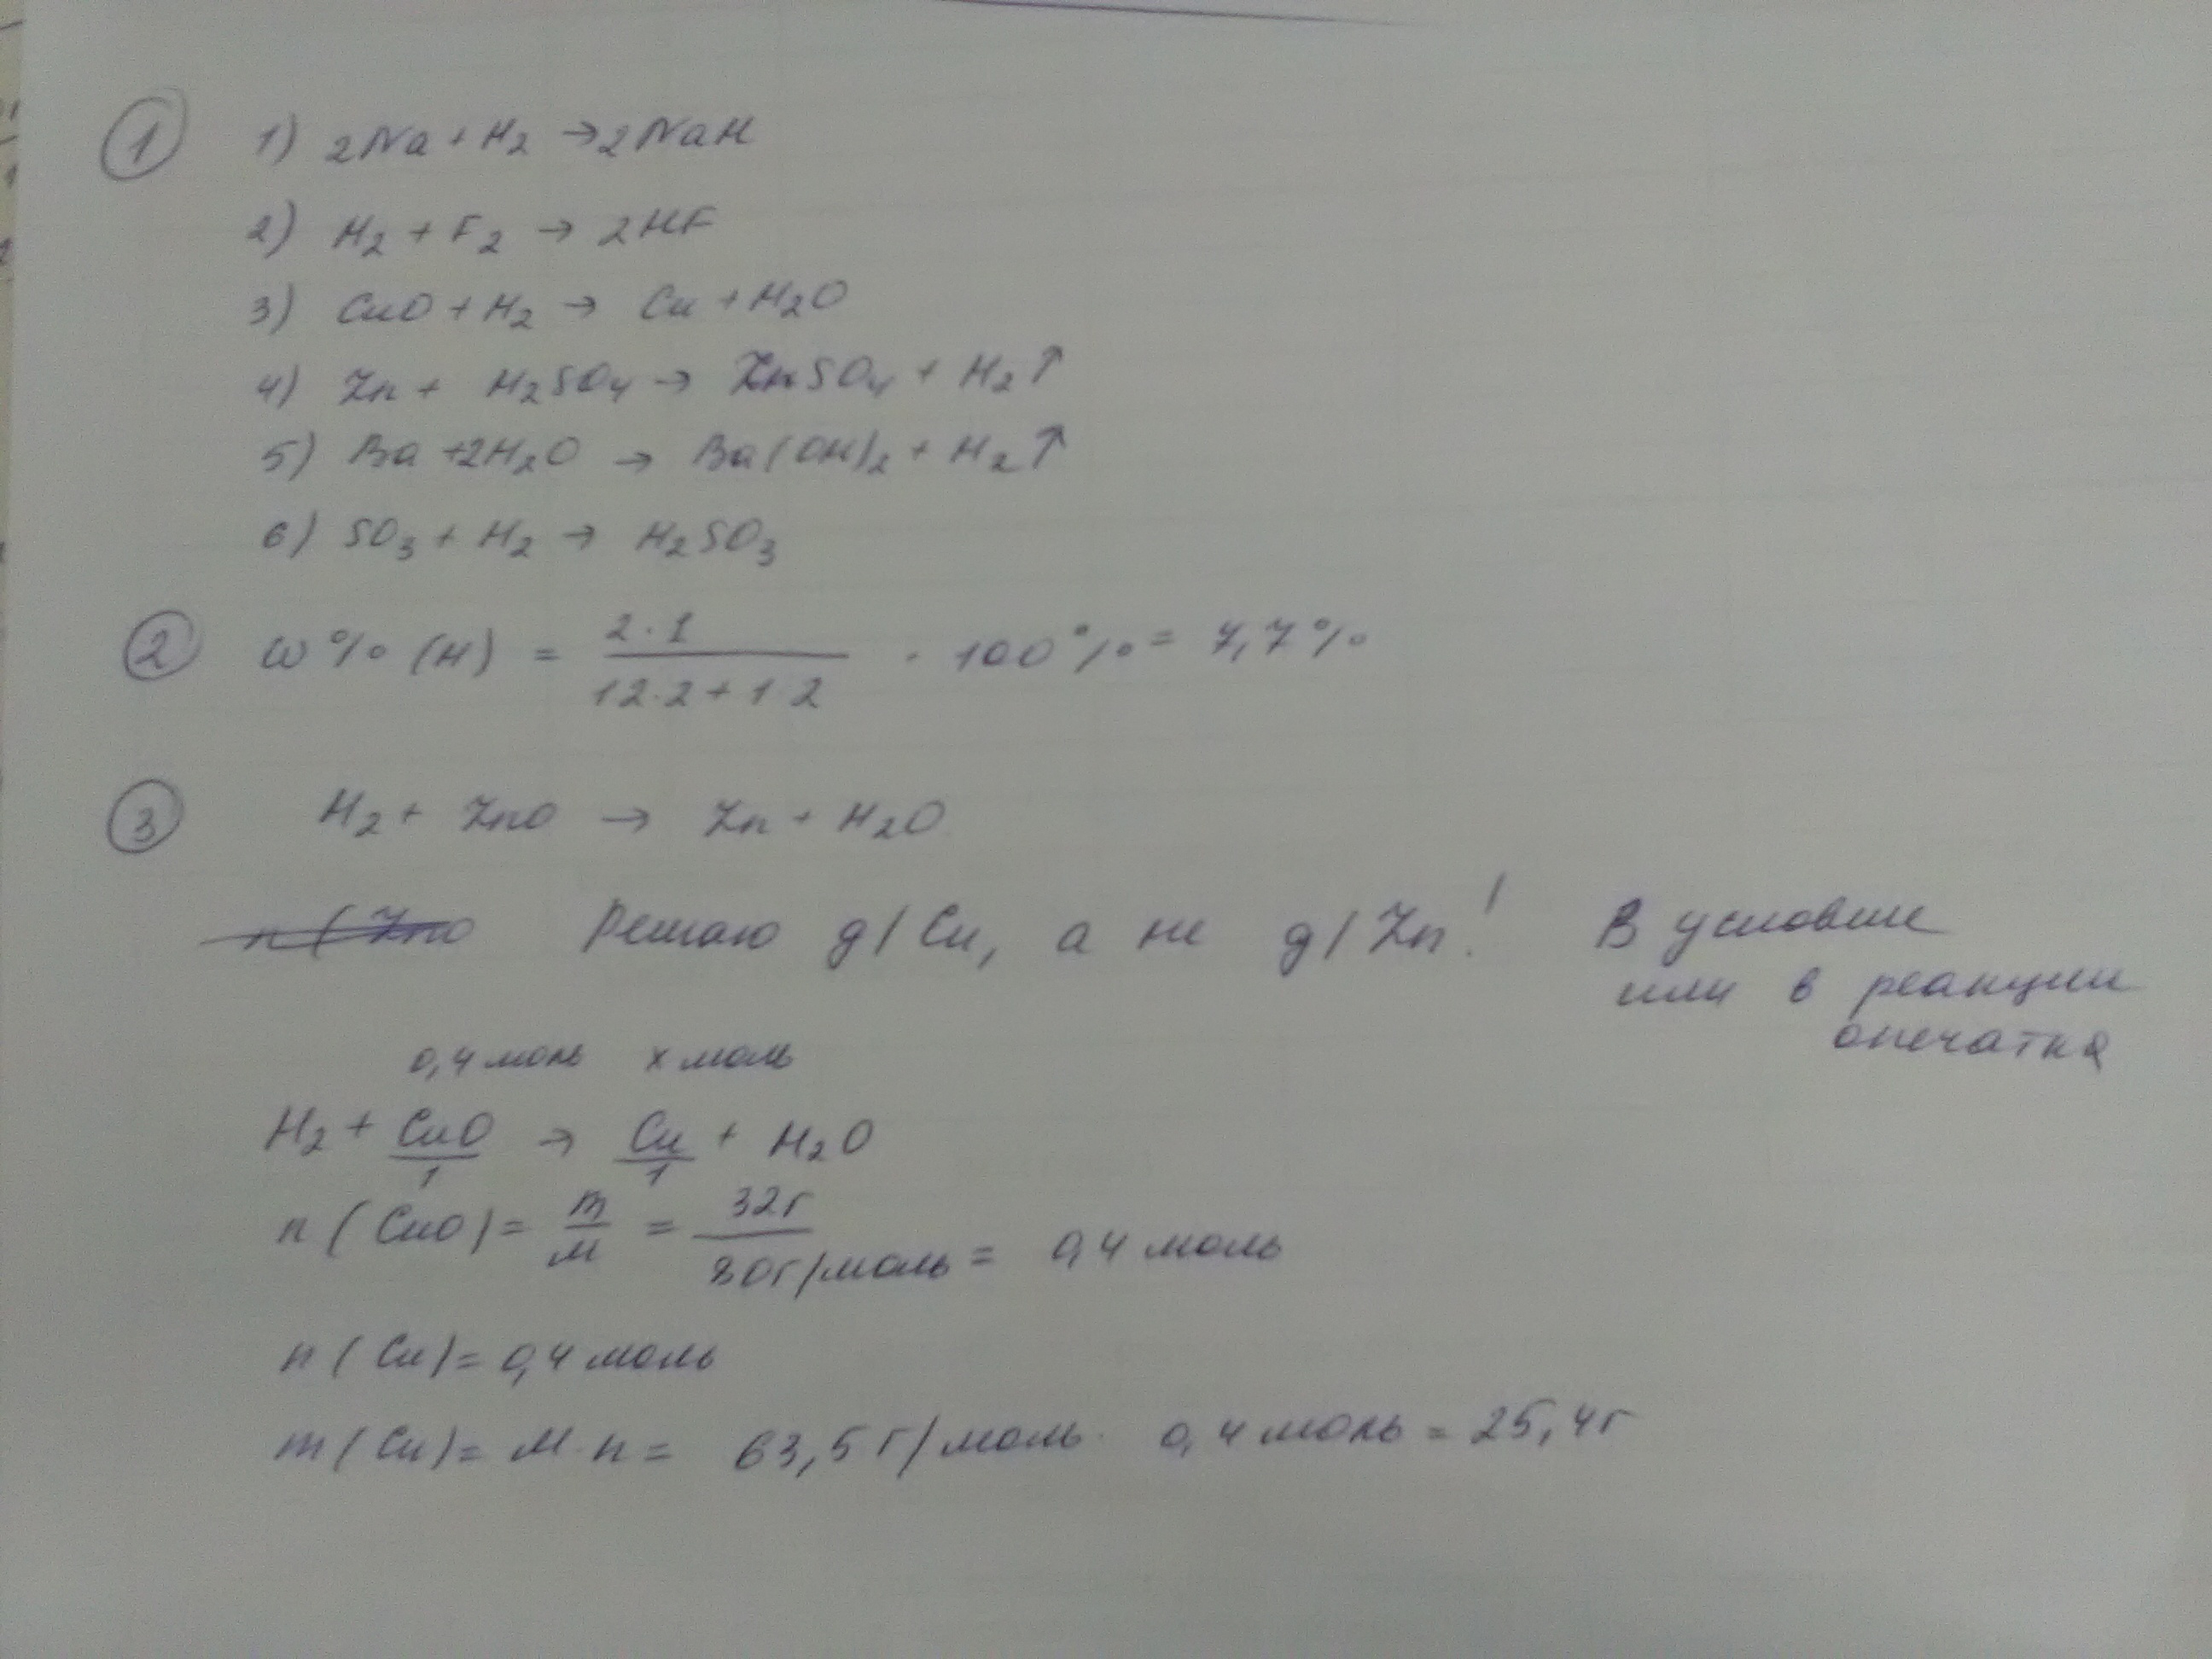 1
1) 2Na + H₂ → 2NaH
2) H₂ + F₂ → 2HF
3) CuO + H₂ → Cu + H₂O
4) Zn + H₂SO₄ → ZnSO₄ + H₂↑
5) Ba + 2H₂O → Ba(OH)₂ + H₂↑
6) SO₃ + H₂ → H₂SO₃
2 ω%(H) = (2·1)/(12·2+1·2) · 100% = 7,7%
3 H₂ + ZnO → Zn + H₂O
n(ZnO Решаю д/Cu, а не д/Zn! В условие
или в реакции
опечатка
0,4 моль х моль
H₂ + CuO → Cu + H₂O
1 1
n(CuO) = m/M = 32г/80г/моль = 0,4 моль
n(Cu) = 0,4 моль
m(Cu) = M·n = 63,5 г/моль · 0,4 моль = 25,4г